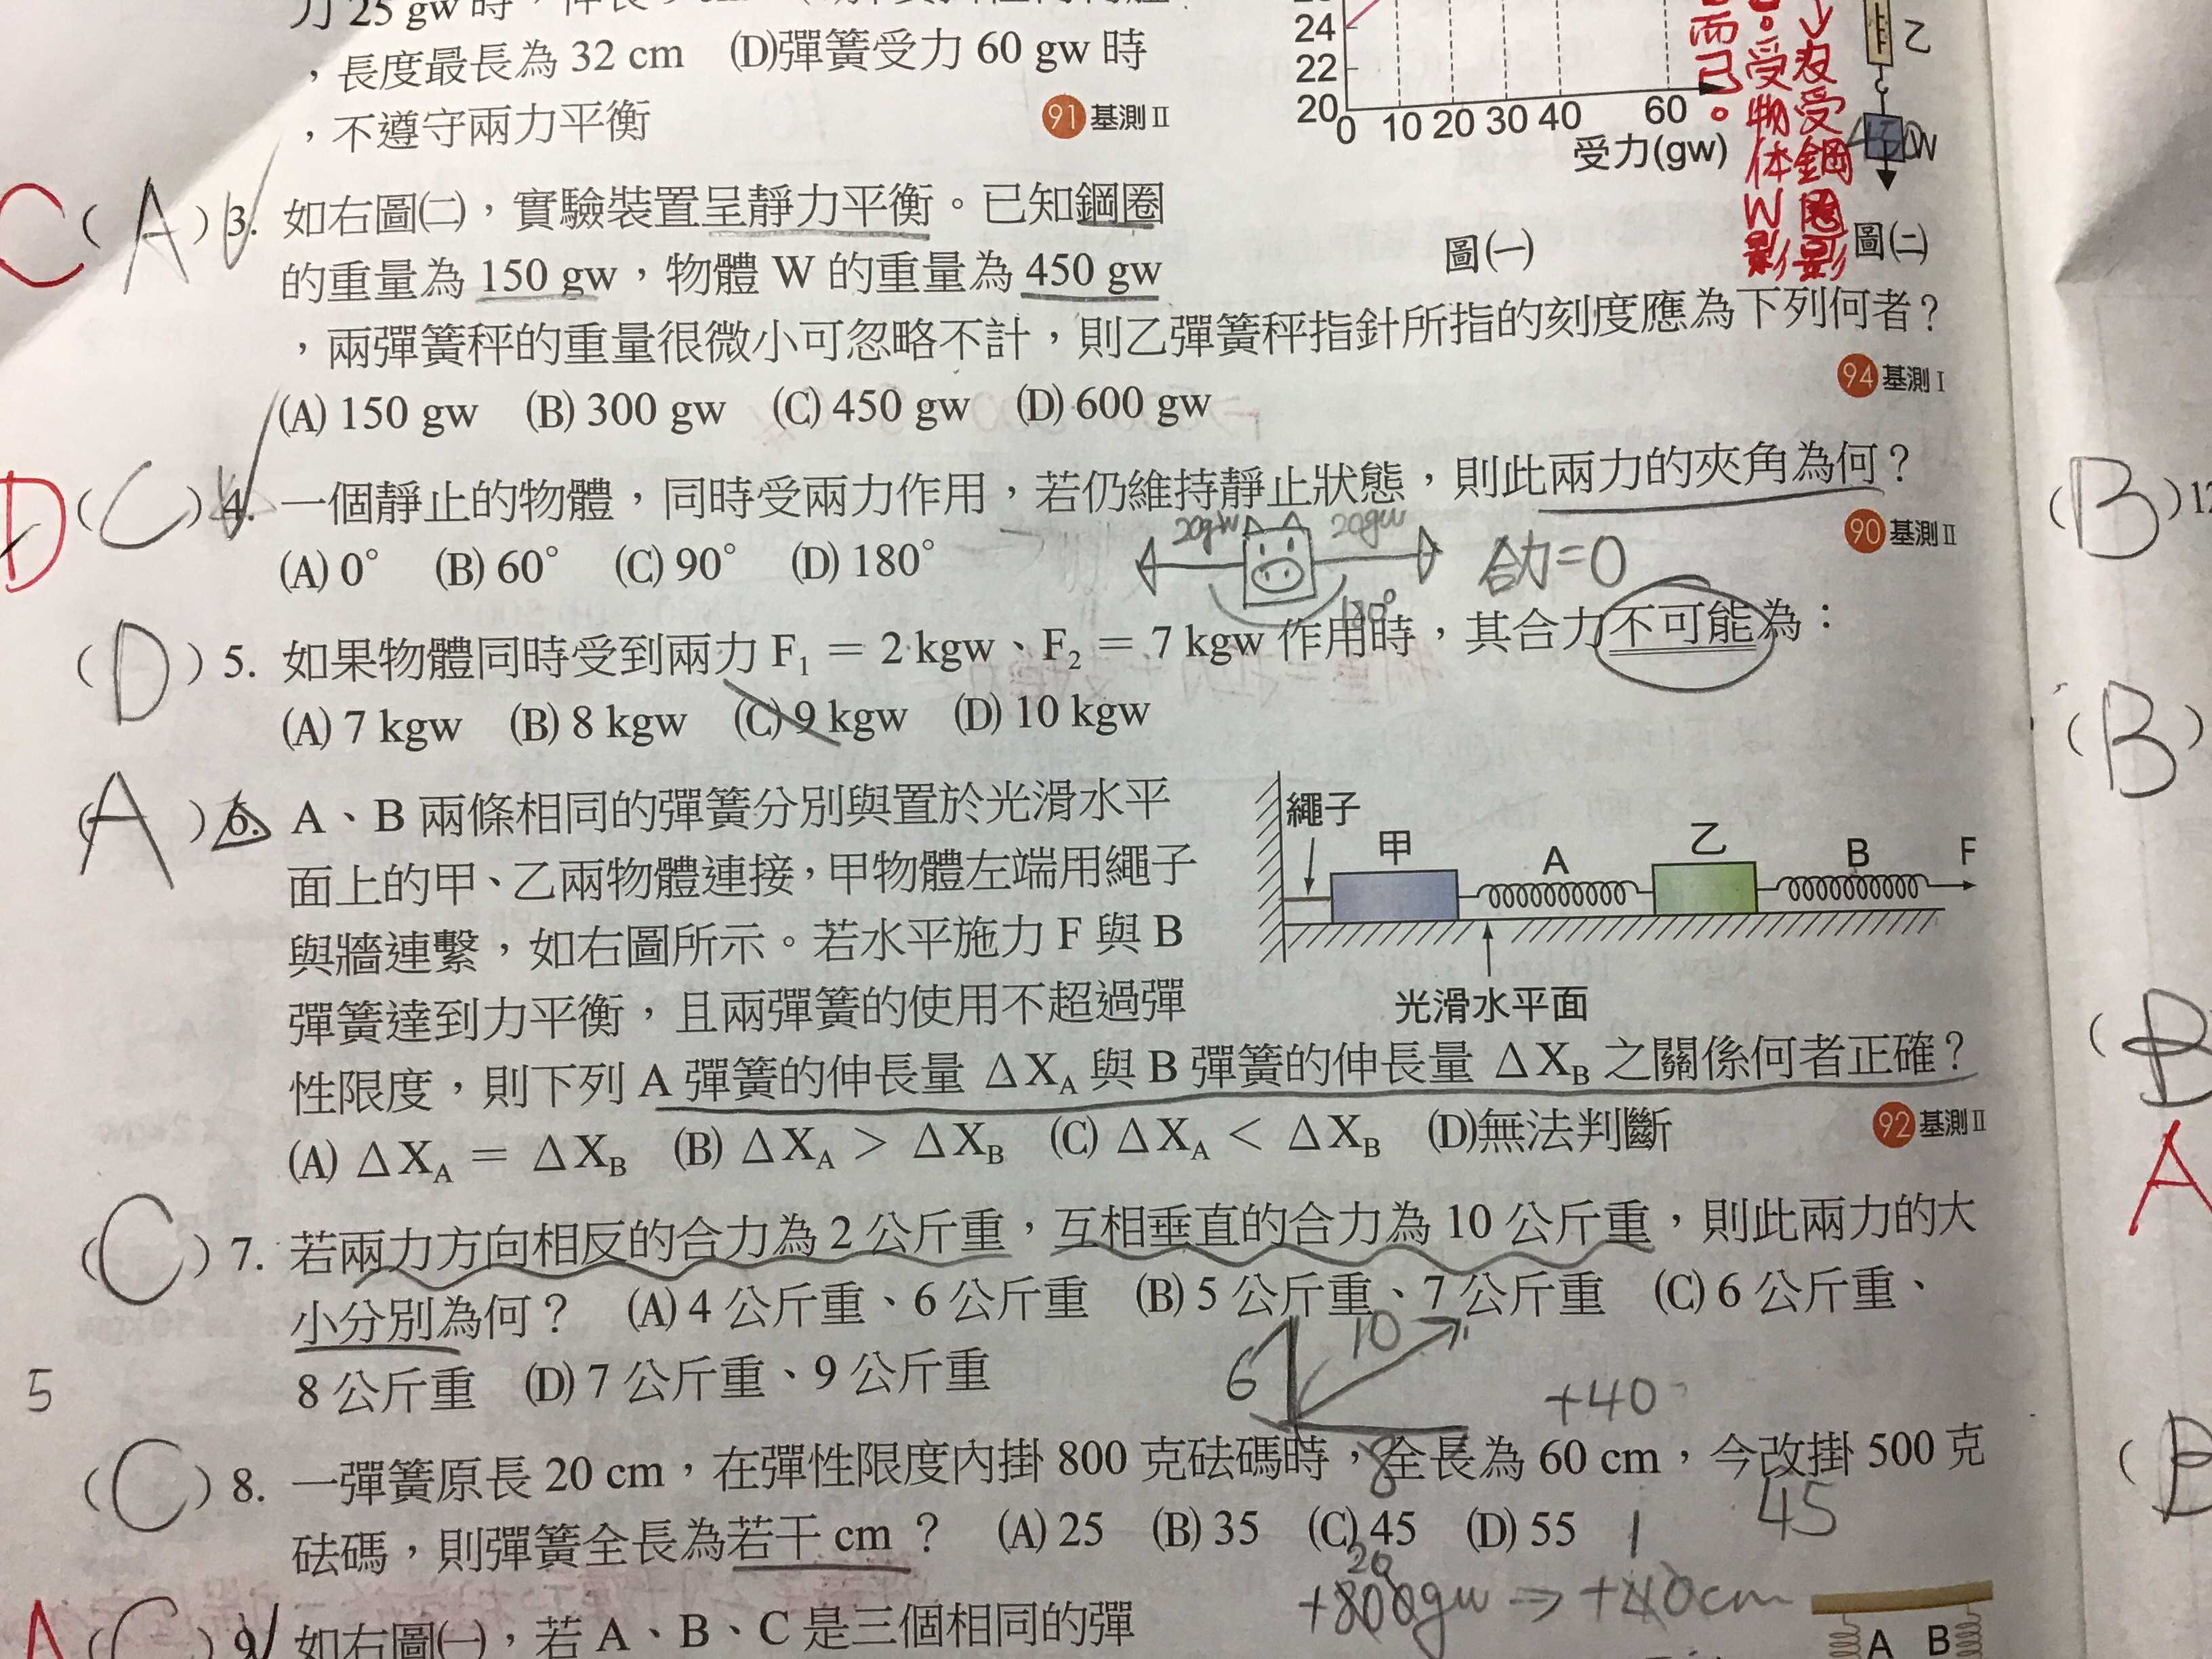 力 25 gw 時，伸長
，長度最長為 32 cm　(D)彈簧受力 60 gw 時
，不遵守兩力平衡
91 基測 II
24
22
20
0 10 20 30 40 60
受力(gw)
圖(一)
而已。
受物体W影
没受鋼圈影
乙
W
圖(二)
C ( A ) 3. 如右圖(二)，實驗裝置呈靜力平衡。已知鋼圈
的重量為 150 gw，物體 W 的重量為 450 gw
，兩彈簧秤的重量很微小可忽略不計，則乙彈簧秤指針所指的刻度應為下列何者？
94 基測 I
(A) 150 gw　(B) 300 gw　(C) 450 gw　(D) 600 gw
D ( C ) 4. 一個靜止的物體，同時受兩力作用，若仍維持靜止狀態，則此兩力的夾角為何？
90 基測 II
(A) 0°　(B) 60°　(C) 90°　(D) 180°
20gw 20gw
180°
合力=0
( D ) 5. 如果物體同時受到兩力 F₁ = 2 kgw、F₂ = 7 kgw 作用時，其合力不可能為：
(A) 7 kgw　(B) 8 kgw　(C) 9 kgw　(D) 10 kgw
( A ) 6. A、B 兩條相同的彈簧分別與置於光滑水平
面上的甲、乙兩物體連接，甲物體左端用繩子
與牆連繫，如右圖所示。若水平施力 F 與 B
彈簧達到力平衡，且兩彈簧的使用不超過彈
性限度，則下列 A 彈簧的伸長量 ΔX_A 與 B 彈簧的伸長量 ΔX_B 之關係何者正確？
92 基測 II
(A) ΔX_A = ΔX_B　(B) ΔX_A > ΔX_B　(C) ΔX_A < ΔX_B　(D)無法判斷
繩子
甲
A
乙
B
F
光滑水平面
( C ) 7. 若兩力方向相反的合力為 2 公斤重，互相垂直的合力為 10 公斤重，則此兩力的大
小分別為何？　(A) 4 公斤重、6 公斤重　(B) 5 公斤重、7 公斤重　(C) 6 公斤重、
8 公斤重　(D) 7 公斤重、9 公斤重
6
10
8
5
+40
( C ) 8. 一彈簧原長 20 cm，在彈性限度內掛 800 克砝碼時，全長為 60 cm，今改掛 500 克
砝碼，則彈簧全長為若干 cm？　(A) 25　(B) 35　(C) 45　(D) 55
45
20
1
+800gw ⇒ +40cm
A ( C ) 9. 如右圖(一)，若 A、B、C 是三個相同的彈
A
B
( B ) 12
( B )
( B
A
( B